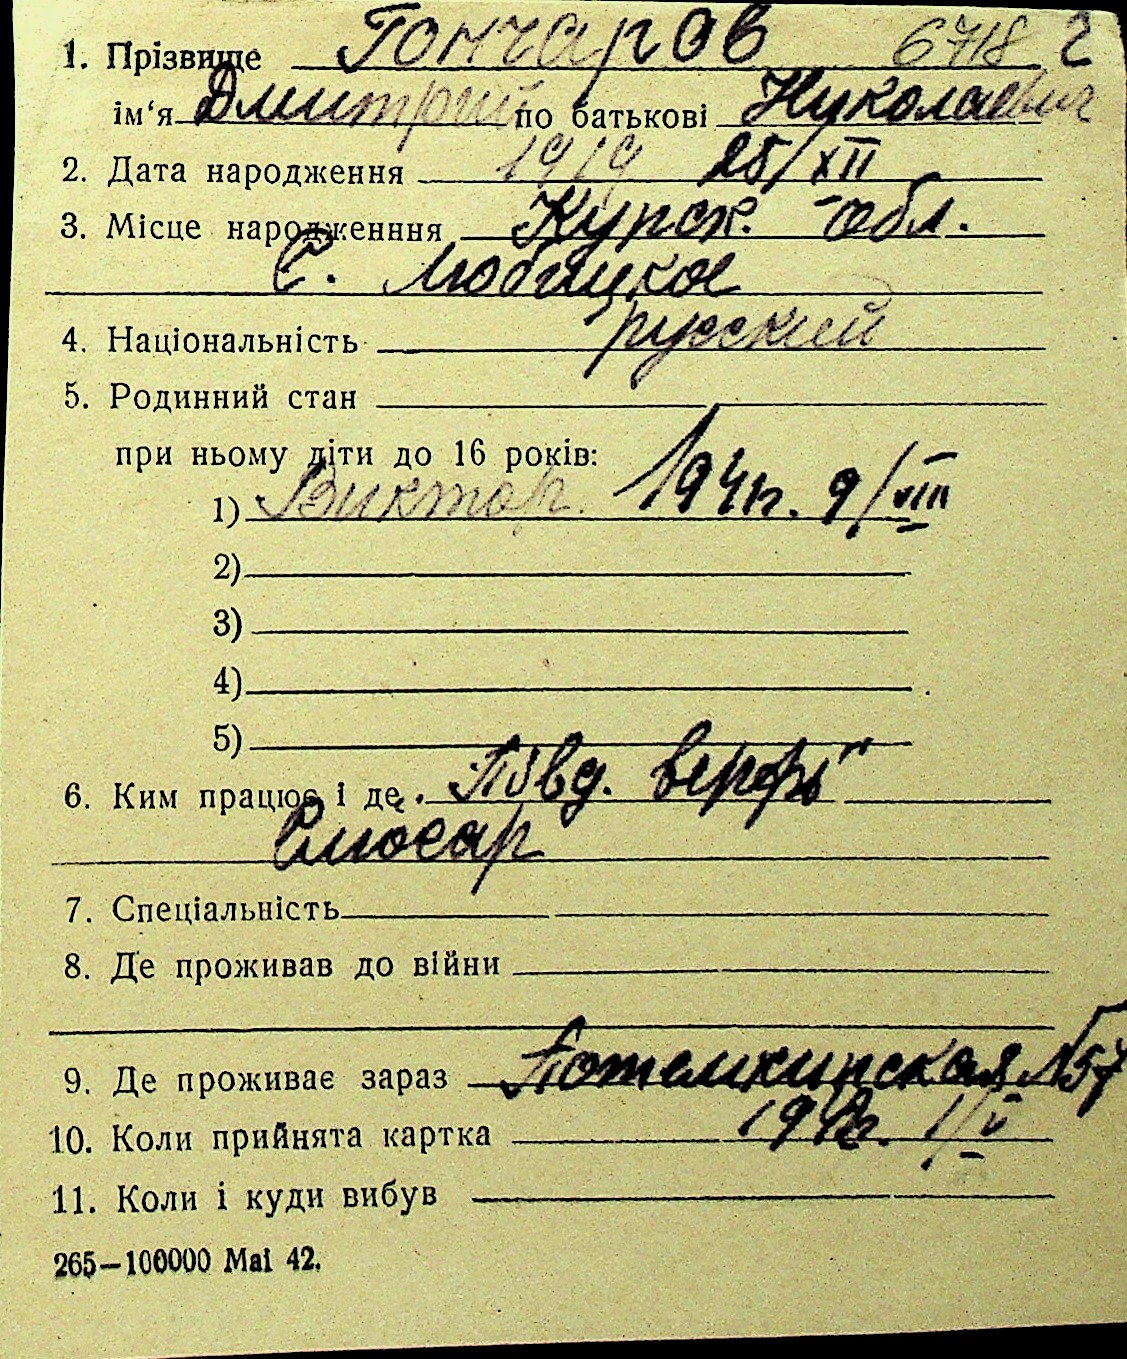 1. Прізвище Гончаров 6718 2
ім‘я Дмитрий по батькові Николаевич
2. Дата народження 1919 25/XII
3. Місце народженння Курск. обл.
с. Любицкое
4. Національність русский
5. Родинний стан
при ньому діти до 16 років:
1) Виктор. 1941г. 9/VIII
2)
3)
4)
5)
6. Ким працює і де. „Півд. верфь"
Слюсар
7. Спеціальність
8. Де проживав до війни
9. Де проживає зараз Потемкинская №57
10. Коли прийнята картка 1942г. 1/V
11. Коли і куди вибув
265—100000 Mai 42.